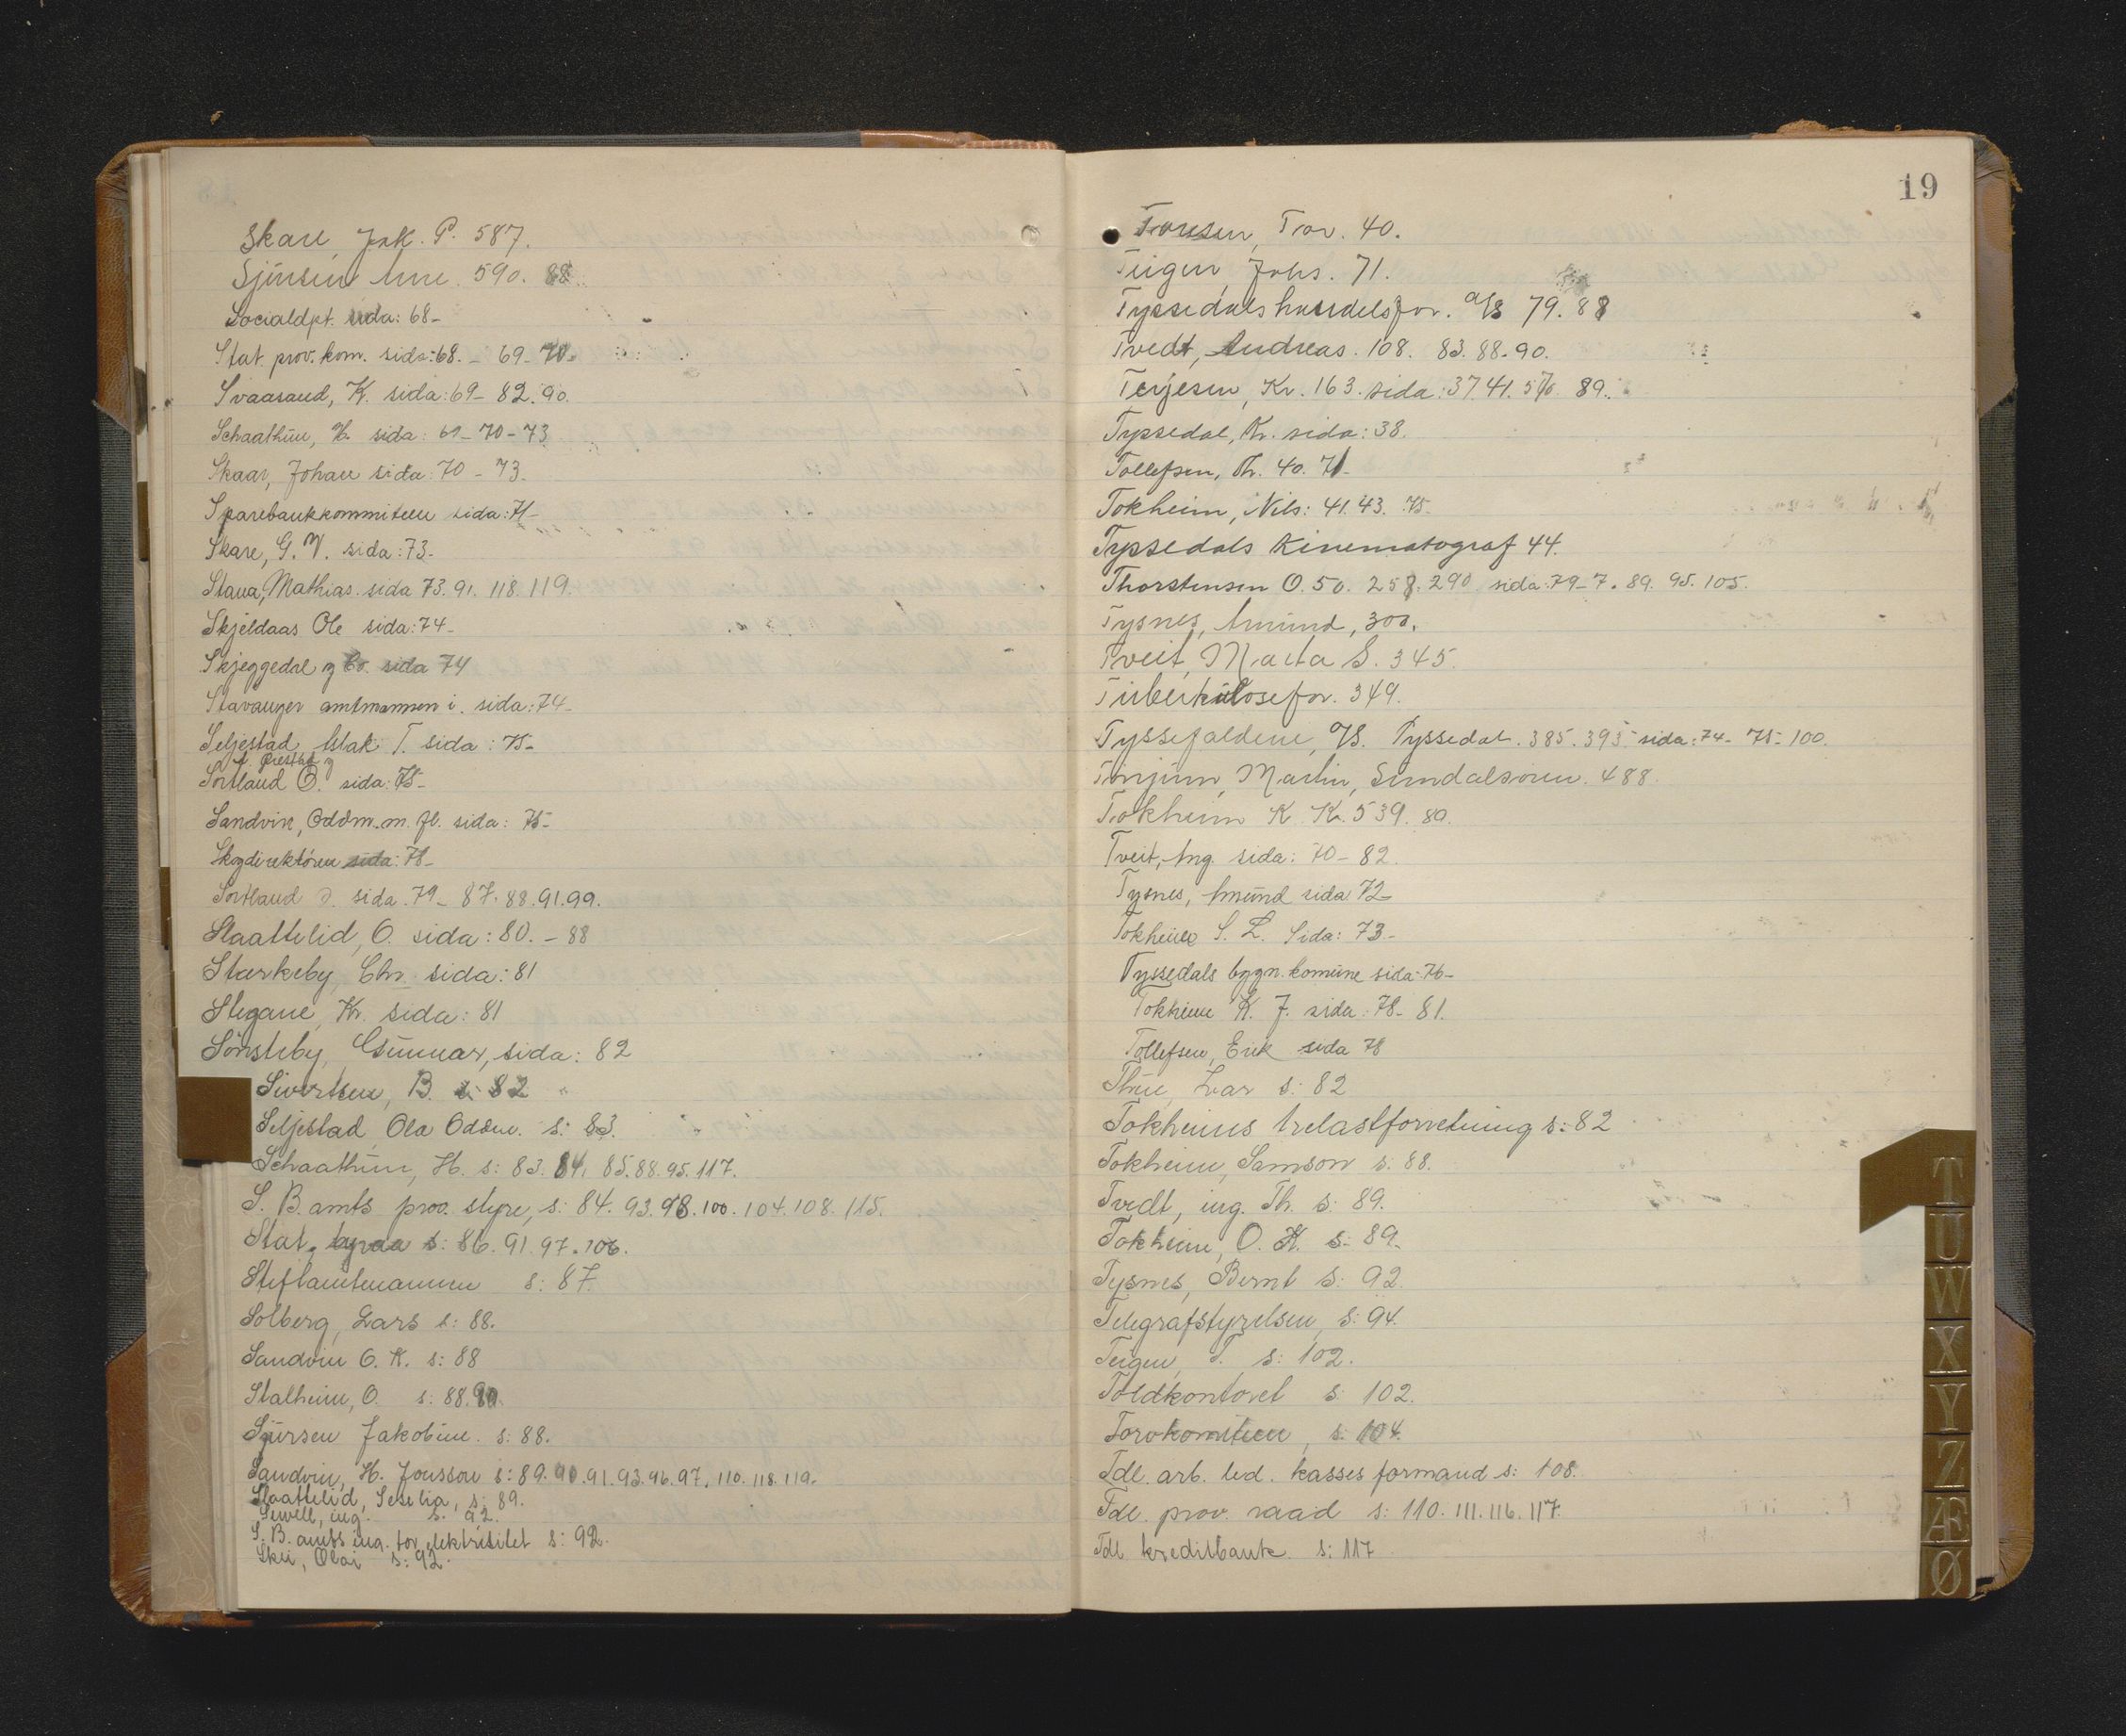 Skare, Jak. P. 587.
Sjursen Ane. 590. 88.
Socialdpt. sida: 68-
Stat. prov. kom. sida: 68. - 69 - 70.
Svaasand, K. sida: 69 - 82. 90.
Schaathun, H. sida: 69 - 70 - 73
Skaar, Johan sida: 70 - 73.
Sparebankkommiteen sida: 71-
Skare, G. V. sida: 73-
Stana, Mathias. sida 73. 91. 118. 119.
Skjeldaas Ole sida: 74-
Skjeggedal og Co. sida 74
Stavanger amtmannen i. sida: 74-
Seljestad, Aslak T. sida: 75-
Sortland O. sida: 75-
Sandvin, Oddm. m. fl. sida: 75-
Skogdirektören sida: 78-
Sortland O. sida. 79 - 87. 88. 91. 99.
Slaattelid, O. sida: 80. - 88
Starkeby, Chr. sida: 81
Stegane, Kr. sida: 81
Sönsteby, Gunnar, sida: 82
Sivertsen, B. s: 82
Seljestad Ola Oddm. s: 83.
Schaathun, H. s: 83. 84. 85. 88. 95. 117.
S. B. amts prov. styre, s: 84. 93. 98. 100. 104. 108. 115.
Stat. byraa s: 86. 91. 97. 106.
Stiftamtmannen s: 87.
Solberg, Lars s: 88.
Sandvin O. K. s: 88
Stalheim, O. s: 88. 90
Sjursen Jakobine. s: 88.
Sandvin, H. Jonsson s: 89. 90. 91. 93. 96. 97. 110. 118. 119.
Slaattelid, Sesilia, s: 89.
Sewell, ing. s: 92.
S. B. amts ing. for elektrisitet s: 92.
Skei, Olai s: 92.
19
Toresen, Tor. 40.
Teigen, Johs. 71.
Tyssedals handelsfor. a/s 79. 88
Tvedt, Andreas. 108. 83. 88. 90.
Terjesen, Kr. 163. sida: 37 41. 89.
Tyssedal, Kr. sida: 38.
Tollefsen, Th. 40. 71-
Tokheim, Nils: 41. 43. 75-
Tyssedals Kinematograf 44.
Thorstensen O. 50. 258. 290 sida: 79 - 7. 89. 95. 105.
Tysnes, Amund, 300.
Tveit, Marta S. 345.
Tuberkulosefor. 349.
Tyssefaldene, A/S. Tyssedal. 385. 395 sida: 74 - 75 - 100.
Tönjum, Martin, Sundalsören. 488.
Tokheim K. K. 539. 80.
Tveit, Ang. sida: 70 - 82.
Tysnes, Amund sida 72-
Tokheim S. L. Sida: 73-
Tyssedals bygn. komune sida: 76-
Tokheim K. J. sida: 78 - 81.
Tollefsen, Erik sida 78
Thue, Ivar s: 82
Tokheims trelastforretning s: 82
Tokheim, Samson s: 88.
Tvedt, ing. Th. s: 89.
Tokheim, O. H. s: 89-
Tysnes, Bernt s: 92.
Telegrafstyrelsen, s: 94.
Teigen, T. s: 102.
Toldkontoret s: 102.
Torvkomiteen, s: 104.
Tdl. arb. led. kasses formand s: 108.
Tdl. prov. raad s: 110. 111. 116. 117.
Tdl kreditbank s: 117
T
U
W
X
Y
Z
Æ
Ø